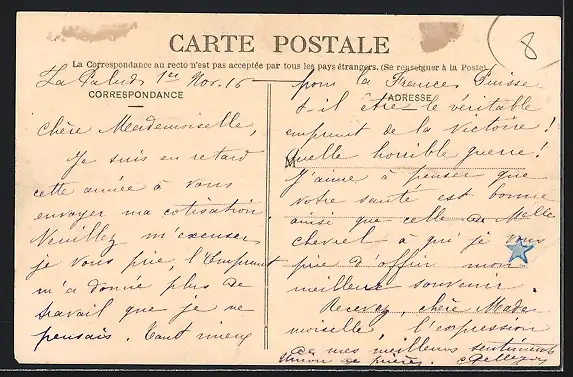 8
CARTE POSTALE
La Correspondance au recto n'est pas acceptée par tous les pays étrangers. (Se renseigner à la Poste)
CORRESPONDANCE
ADRESSE
M
La Palud, 1er Nov. 16
Chère Mademoiselle,
Je suis en retard
cette année à vous
envoyer ma cotisation.
Veuillez m'excuser
je vous prie, l'Emprunt
m'a donné plus de
travail que je ne
pensais. Tant mieux
pour la France. Puisse
t-il être le véritable
emprunt de la Victoire!
Quelle horrible guerre!
J'aime à penser que
votre santé est bonne
ainsi que celle de Melle
Chevrel à qui je vous
prie d'offrir mon
meilleur souvenir.
Recevez, chère Made
moiselle, l'expression
de mes meilleurs sentiments
Union de prières.